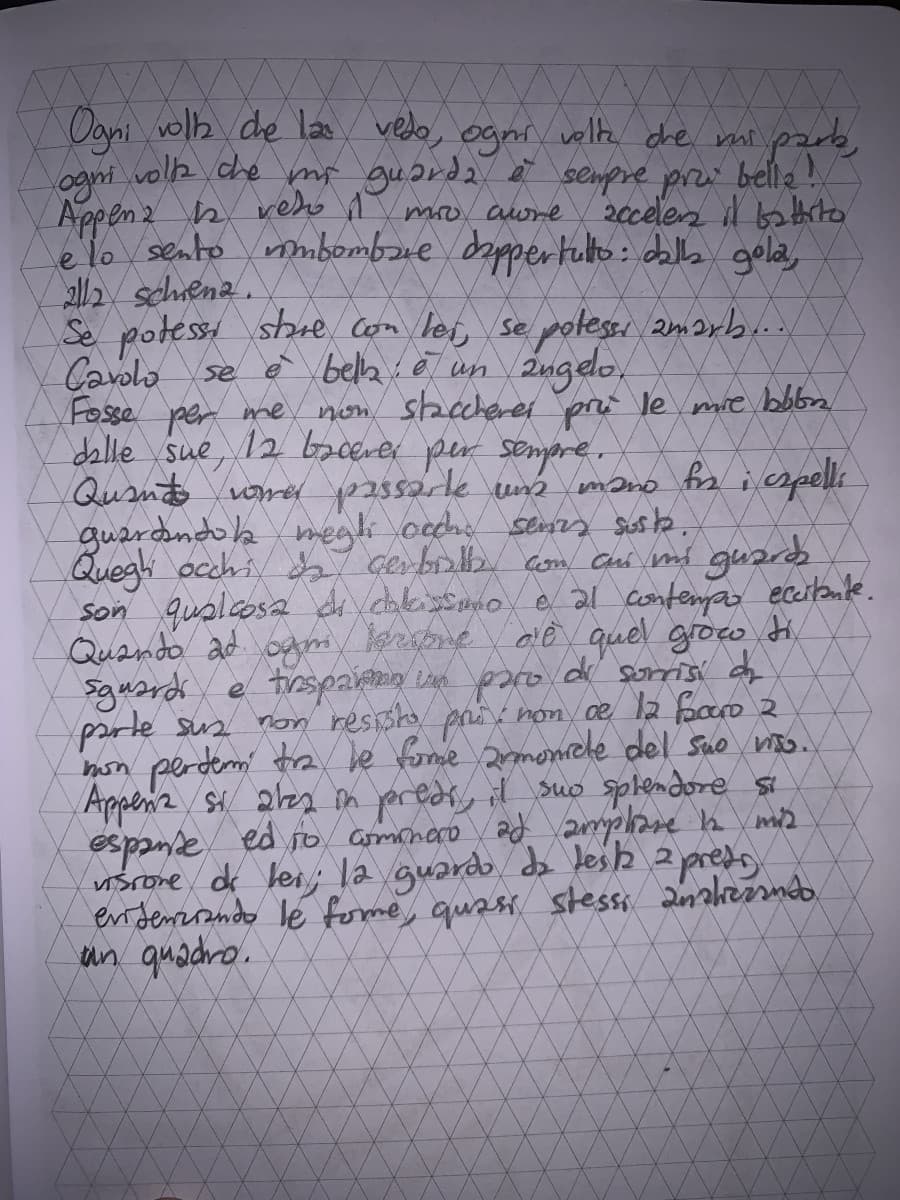 Ogni volta che la vedo, ogni volta che mi parla,
ogni volta che mi guarda è sempre più bella!
Appena la vedo il mio cuore accelera il battito
e lo sento rimbombare dappertutto: dalla gola,
alla schiena.
Se potessi stare con lei, se potessi amarla...
Cavolo se è bella: è un angelo.
Fosse per me non staccherei più le mie labbra
dalle sue, la bacerei per sempre.
Quanto vorrei passarle una mano fra i capelli
guardandola negli occhi senza sosta.
Quegli occhi da cerbiatta con cui mi guarda
son qualcosa di dolcissimo e al contempo eccitante.
Quando ad ogni lezione c'è quel gioco di
sguardi e traspaiono un paio di sorrisi da
parte sua non resisto più: non ce la faccio a
non perdermi tra le forme armoniche del suo viso.
Appena si alza in piedi, il suo splendore si
espande ed io comincio ad ampliare la mia
visione di lei; la guardo da testa a piedi,
evidenziando le forme, quasi stessi analizzando
un quadro.